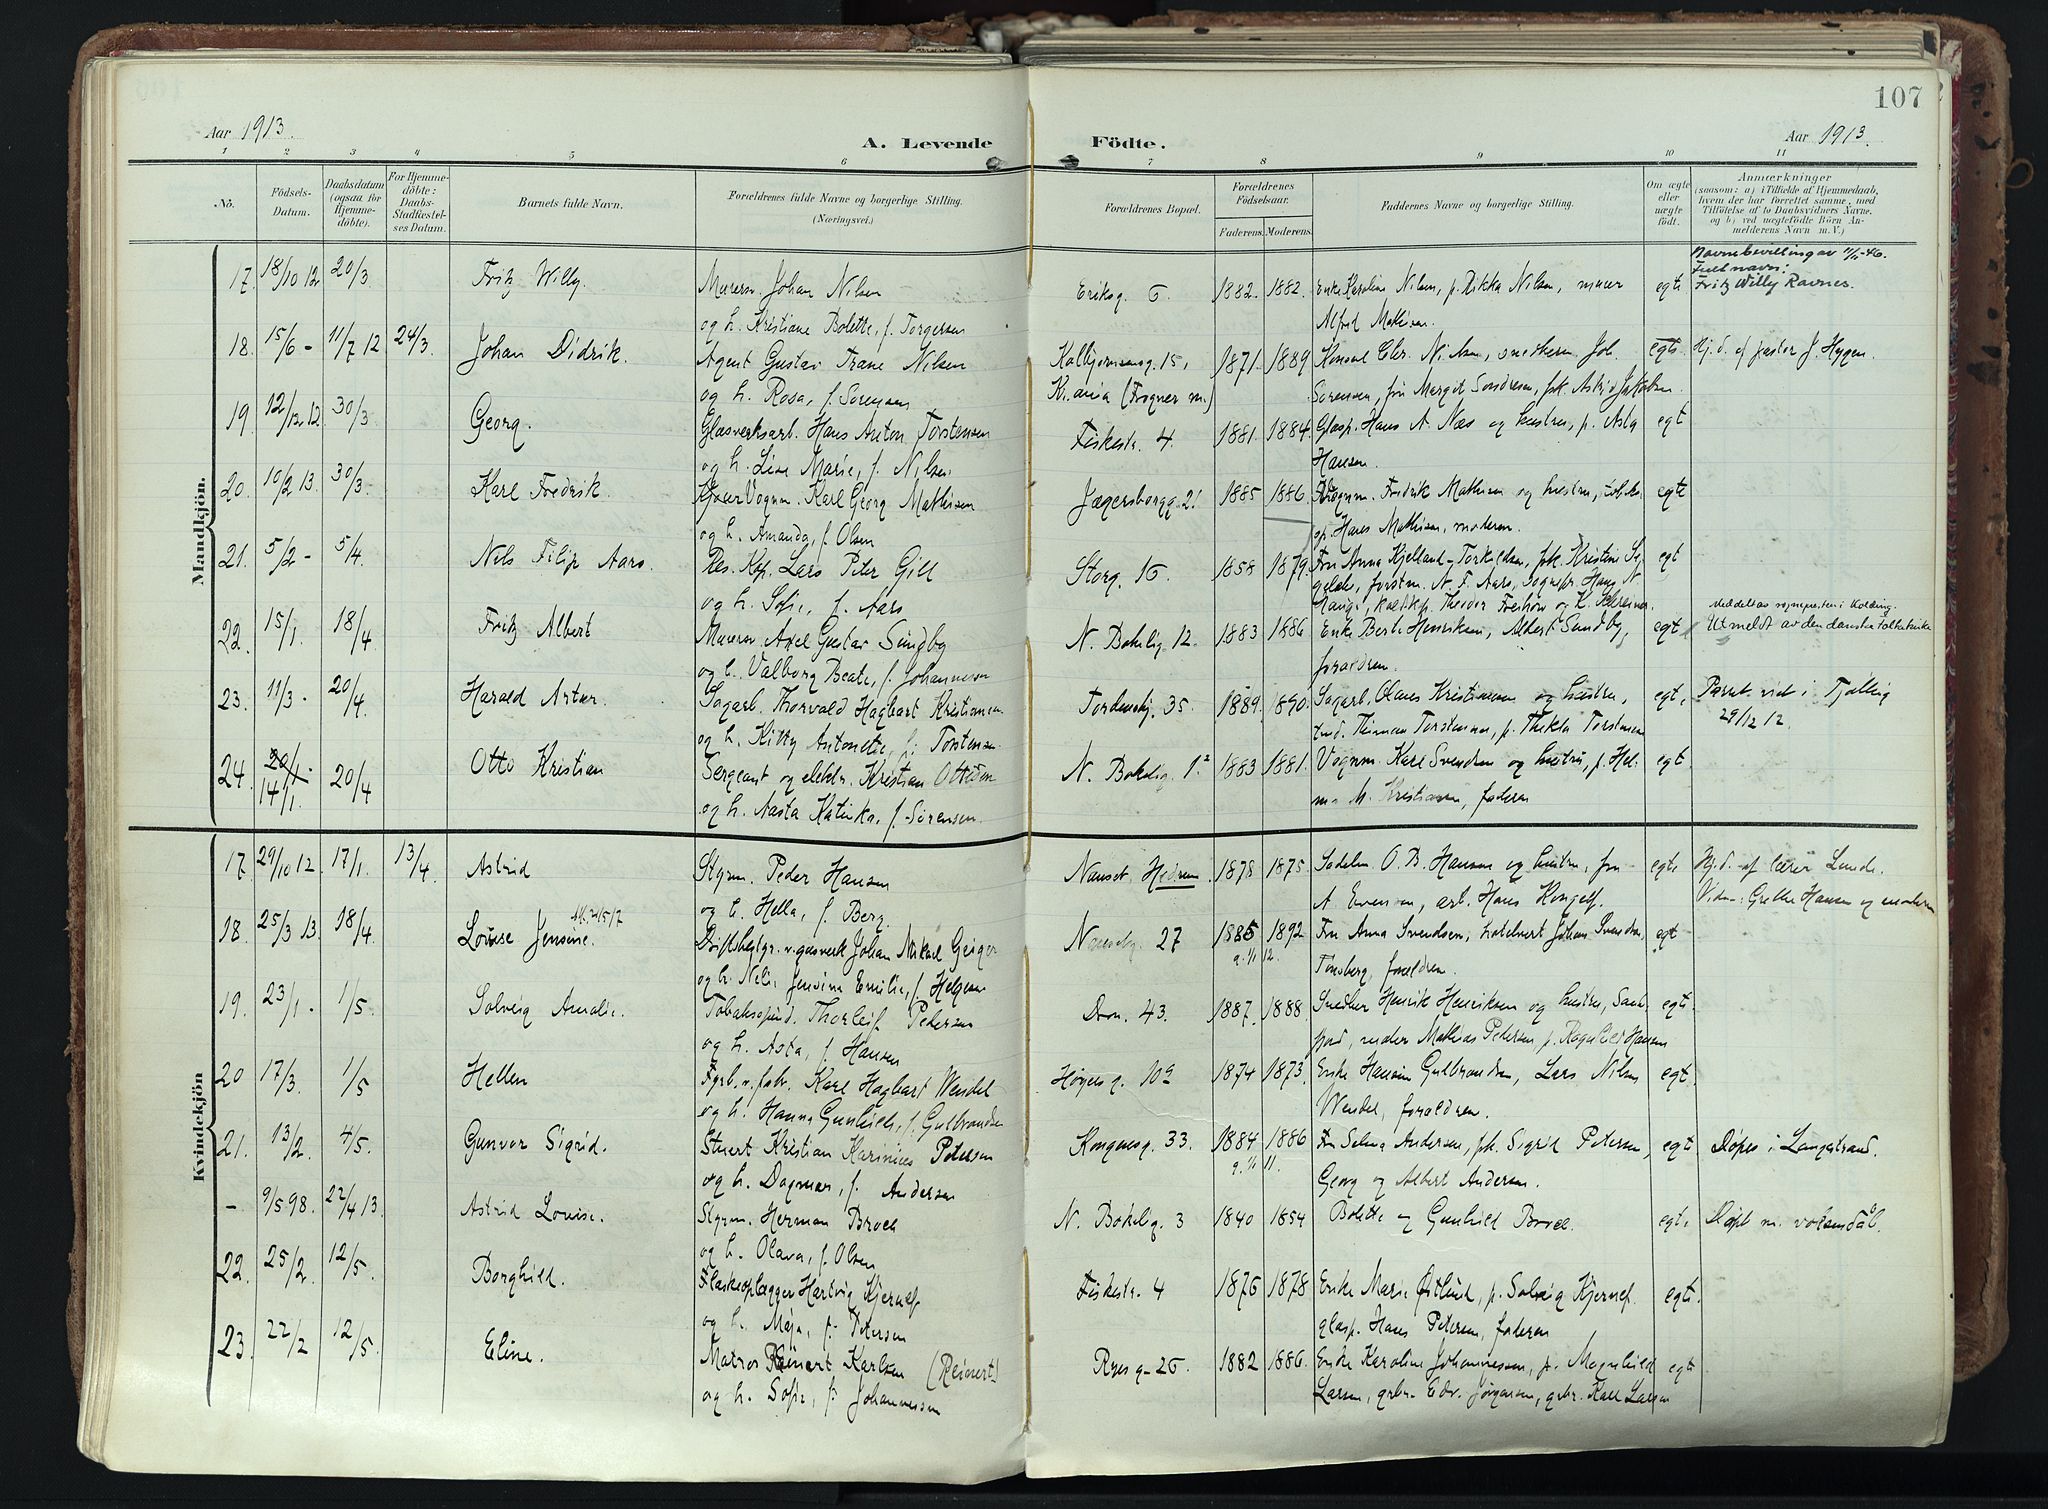 107
Aar 1913.
A. Levende
Födte.
Aar 1913.
1 2 3 4 5 6 7 8 9 10 11
Nö.
Födsels-
Datum.
Daabsdatum
(ogsaa for
Hjemme-
döbte).
For Hjemme-
döbte:
Daabs-
Stadfæstel-
ses Datum.
Barnets fulde Navn.
Forældrenes fulde Navne og borgerlige Stilling.
(Næringsvei.)
Forældrenes Bopæl.
Forældrenes
Födselsaar.
Faderens. Moderens.
Faddernes Navne og borgerlige Stilling.
Om ægte
eller
uægte
födt.
Anmærkninger
(saasom: a) i Tilfælde af Hjemmedaab,
hvem der har forrettet samme, med
Tilföielse af to Daabsvidners Navne,
og b) ved uægtefödte Börn An-
melderens Navn m. V.)
Mandkjön.
17. 18/10 12 20/3 Fritz Willy Murersv. Johan Nilsen
og h. Kristiane Bolette, f. Torgersen
Eriksg. 6. 1882. 1882. Enke Karoline Nilsen, p. Rikka Nilsen, murer
Alfred Mathisen.
egte
Navnebevilling av
Fullt navn:
Fritz Willy Ravnes.
18. 15/6 - 11/7 12 24/3. Johan Didrik. Agent Gustav Trane Nilsen
og h. Rosa, f. Sørensen
15, K.ania (Frogner m.) 1871. 1889 Konsul Chr. Nielsen, snekkerm. Joh.
Sørensen, fru Margit Sondresen, frk. Astrid Jakobsen
egte. Hj.d. af pastor J. Hygen.
19 12/12 12 30/3. Georg. Glasverksarb. Hans Anton Torstensen
og h. Lise Marie, f. Nilsen
Fiskestr. 4. 1881. 1884. Glasp. Hans A. Næs og hustru, p. Asta
Hansen.
egt
20. 10/2 13. 30/3. Karl Fredrik. Karl Georg Mathisen
og h. Amanda, f. Olsen
Jegersborgg. 21 1885 1886. Fredrik Mathisen og hustru,
Hans Mathisen, moderen.
egte
21. 5/2 - 5/4 Nels Filip Aars. Res. Kap. Lars Peter Gill
og h. Sofie, f. Aars
Storg. 16. 1858 1879. Fru Anna Kjelland-Torkildsen, frk. Kristine
forstm. N. F. Aars, Sognepr. Hans N.
Theodor Freihow og
egt
22. 15/1. 18/4 Fritz Albert Murersv. Axel Gustav Sundby
og h. Valborg Beate, f. Johannesen
N. Bøkelig. 12. 1883 1886 Enke Berte Henriksen, Albert Sundby,
forældren.
egt.
Meddelt av sognepresten i Kolding.
Utmeldt av den danske folkekirke
23. 11/3 - 20/4. Harald Artur. Sagarb. Thorvald Hagbart Kristiansen
og h. Kitty Antonette, f. Torstensen.
Tordenskj. 35. 1889. 1890. Sagarb. Olaves Kristiansen og hustru,
Torstensen, p. Thekla Torstensen
egt.
Paret viet i Tjølling
29/12 12.
24. 20/1 - 14/1. 20/4 Otto Kristian Sergeant og elektr. Kristian Ottesen
og h. Aasta Katinka, f. Sørensen.
N. Bøkelig. 1. 1883 1881. Vognm. Karl Svendsen og hustru, p. Hel-
M. Kristiansen, faderen
egt
Kvindekjön
17. 29/10 12. 17/1. 13/4 Astrid Styrm. Peder Hansen
og h. Hella, f. Berg.
Nanset, Hedrum. 1878 1875. Sadelm. O. B. Hansen og hustru, fru
A. Evensen, arb. Hans Kongelf.
egte
Hj.d. af lærer Lunde.
Vidner: Grethe Hansen og moderen
18. 25/3 13. 18/4. Lovise Jensine. Driftsbestyr. v. gasverk Johan Mikael Geiger
og h. Jensine Emilie, f. Helgesen
Nansetg. 27 1885 1892 Fru Anna Svendsen, hotelvert Johan Svendsen,
g. 12.
Tønsberg, forældren.
egt
19. 23/1 - 1/5. Solveig Amalie. Tobaksspind. Thorleif Pedersen
og h. Asta, f. Hansen
Dron. 43. 1887. 1888 Snedker Henrik Henriksen og hustru, Sand-
Mathias Petersen, p. Ragnhild Hansen
egte.
20 17/3. 1/5 Hellen Fyrb. v. jbr. Karl Hagbart Wendel
og h. Hanna Gunhild, f. Gulbrandsen
Høyers g. 10a 1874 1873. Enke Hansine Gulbrandsen, Lars Nilsen
Wendel, forældren.
egt.
21. 13/2. 4/5. Gunvor Sigrid. Stuert Kristian Karinius Petersen
og h. Dagmar, f. Andersen
Kongensg. 33. 1884 1886 Fru Selma Andersen, frk. Sigrid Petersen,
g. 11.
Georg og Albert Andersen.
egte
Døpes i Langestrand.
- 9/5 98. 22/4 13. Astrid Lovise. Styrm. Herman Broch
og h. Olava, f. Olsen
N. Bøkelig. 3 1840 1854 Bolette og Gunhild Broch.
egte
Døpt m. voksendåb.
22. 25/2. 12/5. Borghild. Flaskeoplægger Hartvig Kjernef
og h. Maja, f. Petersen
Fiskestr. 4 1876 1878 Enke Marie Østlund, p. Solveig Kjernef.
glasp. Hans Petersen, faderen
egte.
23. 22/2 12/5. Eline. Matros Reinert Karlsen (Reinert)
og h. Sofie, f. Johannessen
Ryes g. 26. 1882 1886. Enke Karoline Johannessen, p. Magnhild
Larsen, arbm. Edv. Jørgensen, arbm. Karl Larsen
egt